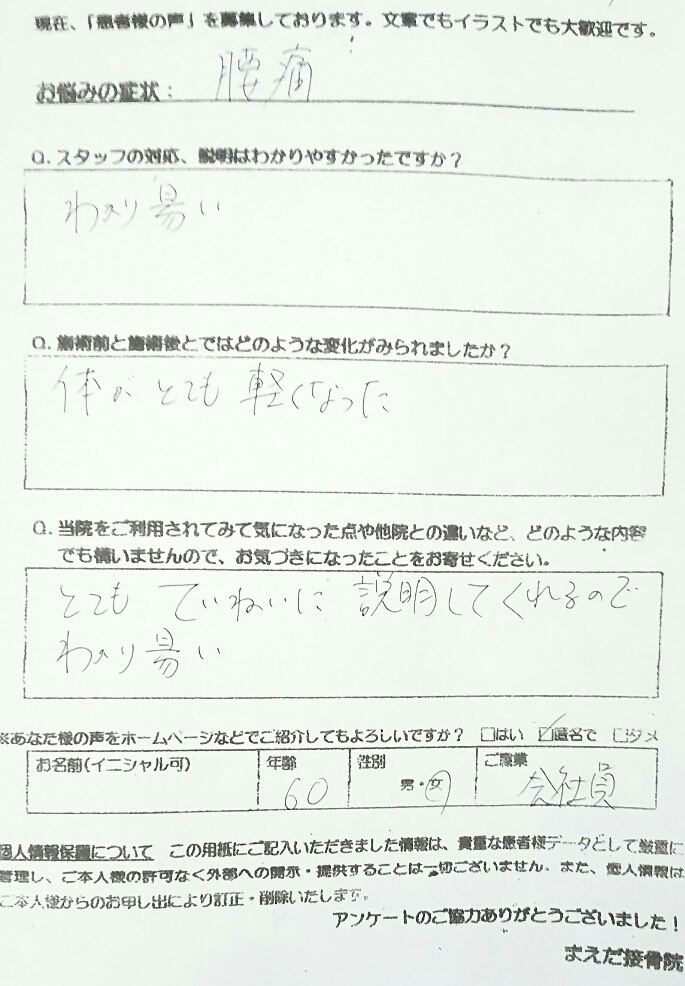 現在、「患者様の声」を募集しております。文章でもイラストでも大歓迎です。
お悩みの症状： 腰痛
Q. スタッフの対応、説明はわかりやすかったですか？
わかり易い
Q. 施術前と施術後とではどのような変化がみられましたか？
体がとても軽くなった
Q. 当院をご利用されてみて気になった点や他院との違いなど、どのような内容
でも構いませんので、お気づきになったことをお寄せください。
とてもていねいに説明してくれるので
わかり易い
※あなた様の声をホームページなどでご紹介してもよろしいですか？ □はい ☑匿名で □ダメ
お名前(イニシャル可) 年齢 性別 ご職業
60 男・女 会社員
個人情報保護について この用紙にご記入いただきました情報は、貴重な患者様データとして厳重に
管理し、ご本人様の許可なく外部への開示・提供することは一切ございません。また、個人情報は
ご本人様からのお申し出により訂正・削除いたします。
アンケートのご協力ありがとうございました！
まえだ接骨院